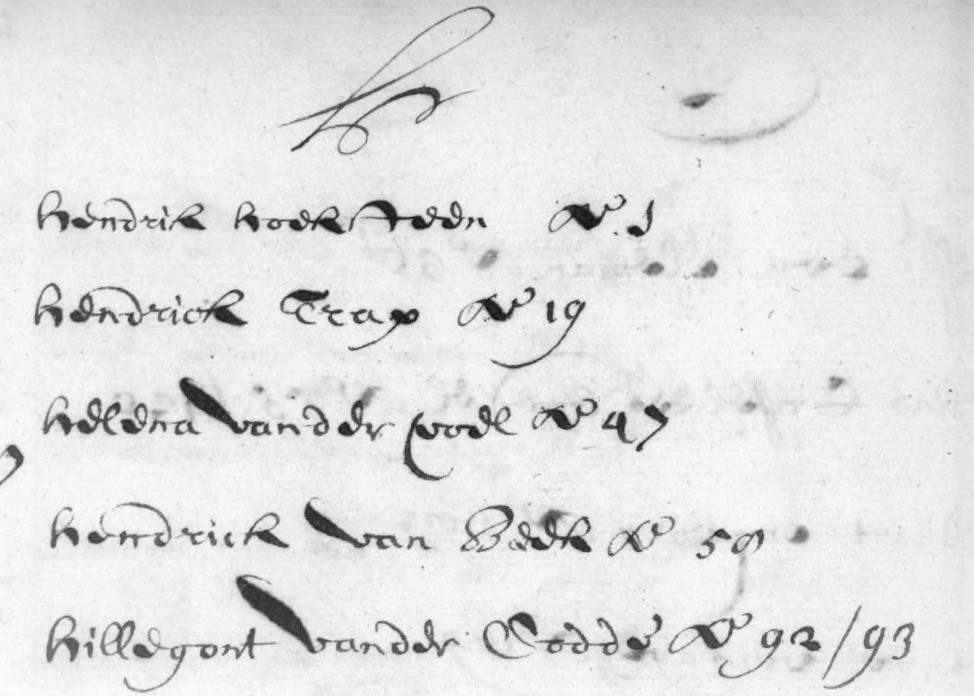 H
Hendrick Hoeksteen No 1
Hendrick Trap No 19
Helena vander Poel No 47
Hendrick van Beek No 59
Hillegont vander Codde No 92/93